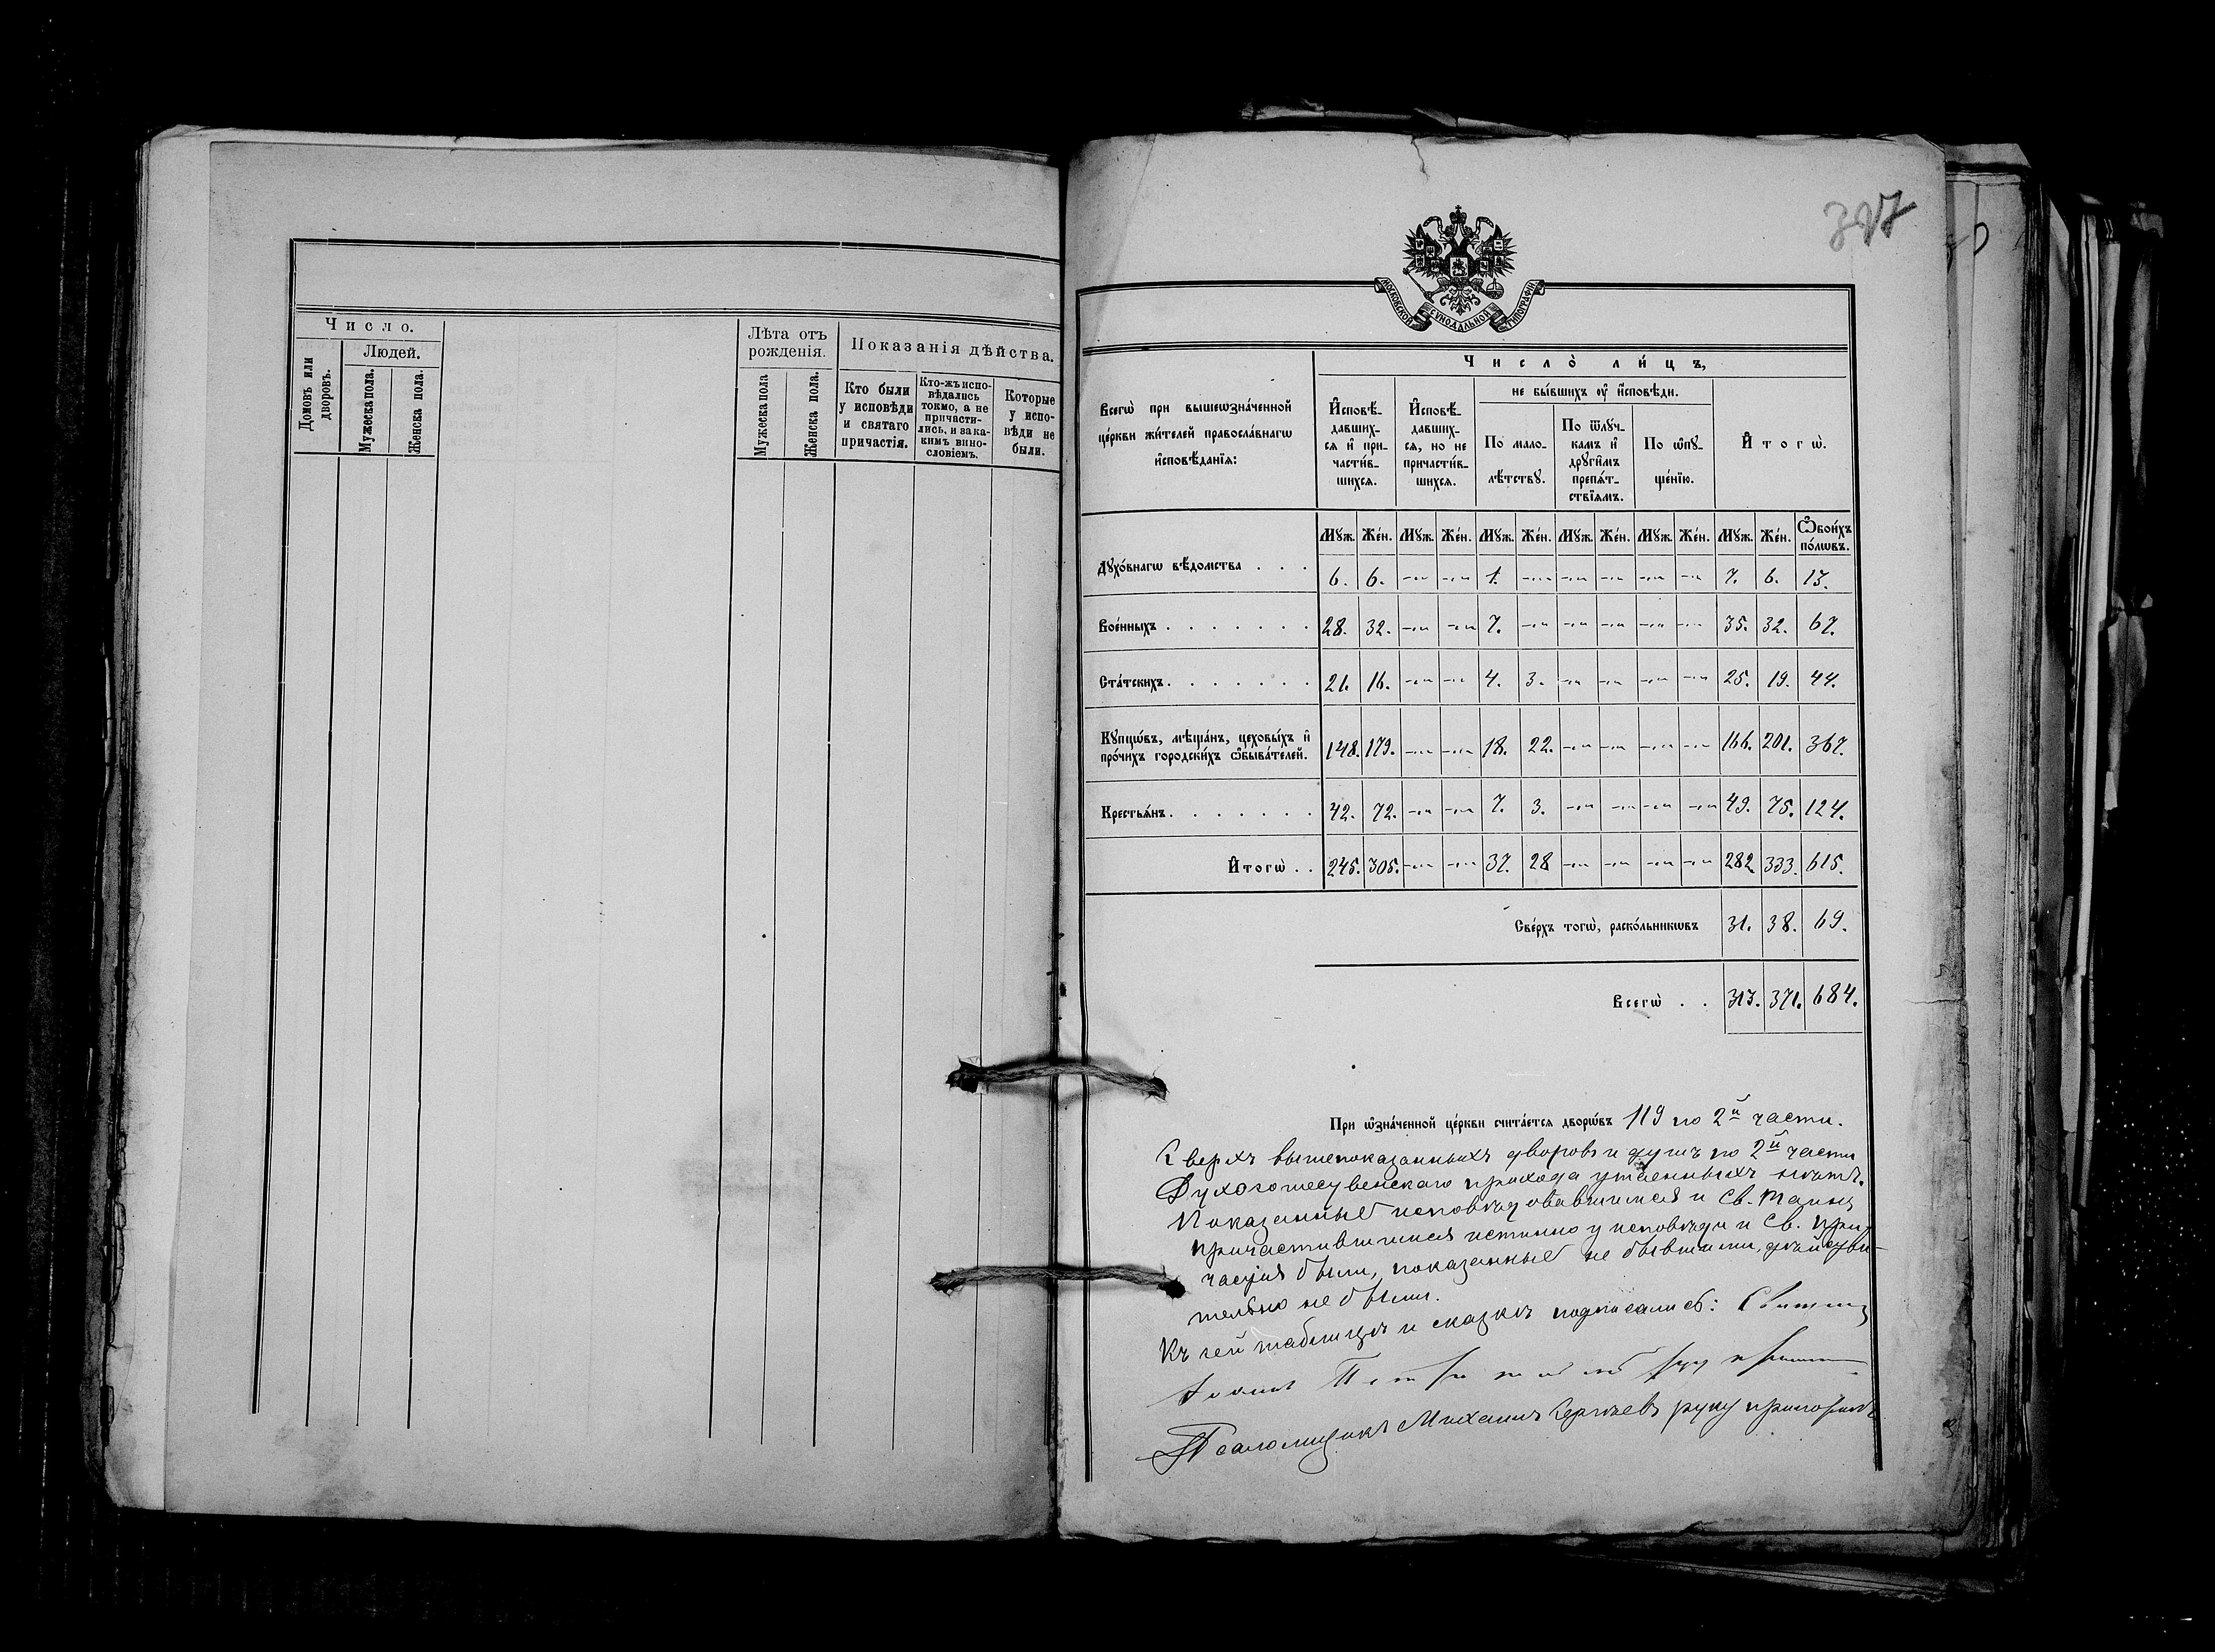 Число.
Людей.
Домовъ или дворовъ.
Мужеска пола.
Женска пола.
Лѣта отъ
рожденія.
Мужеска пола
Женска пола.
Показанія дѣйства.
Кто были
у исповѣди
и святаго
причастія.
Кто-жъ испо-
вѣдались
токмо, а не
причасти-
лись, и за ка-
кимъ вино-
словіемъ.
Которые
у испо-
вѣди не
были.
МОСКОВСКОЙ СѴНОДАЛЬНОЙ ТИПОГРАФІИ
Всегѡ̀ при вышеѡзна́ченной
це́ркви жи́телей правосла́внагѡ
и҆сповѣ́данїѧ:
Число̀ ли́цъ,
И҆сповѣ́-
давших-
сѧ и҆ при-
части́в-
шихсѧ.
И҆сповѣ́-
давших-
сѧ, но не
причасти́в-
шихсѧ.
не бы́вшихъ ᲂу҆ и҆́сповѣди.
По мало-
лѣ́тствꙋ.
По ѿлꙋч-
камъ и҆
дрꙋги̑мъ
препѧ́т-
ствїѧмъ.
По ѡ҆пꙋ-
ще́нїю.
И҆тогѡ̀.
Мꙋж. Же́н. Мꙋж. Же́н. Мꙋж. Же́н. Мꙋж. Же́н. Мꙋж. Же́н. Мꙋж. Же́н. Ѻ҆бои́хъ по́лѡвъ.
Дꙋхо́внагѡ вѣ́домства . . . 6. 6. -„- -„- 1. -„- -„- -„- -„- -„- 7. 6. 13.
Вое́нныхъ . . . . . . . 28. 32. -„- -„- 7. -„- -„- -„- -„- -„- 35. 32. 67.
Ста́тскихъ . . . . . . . 21. 16. -„- -„- 4. 3. -„- -„- -„- -„- 25. 19. 44.
Кꙋпцѡ́въ, мѣща́нъ, цеховы́хъ и҆
про́чихъ городски́хъ ѡ҆быва́телей. 148. 179. -„- -„- 18. 22. -„- -„- -„- -„- 166. 201. 367.
Крестьѧ́нъ . . . . . . . 42. 72. -„- -„- 7. 3. -„- -„- -„- -„- 49. 75. 124.
И҆тогѡ̀ . . 245. 305. -„- -„- 37. 28 -„- -„- -„- -„- 282 333. 615.
Све́рхъ тогѡ̀, раско́льникѡвъ 31. 38. 69.
Всегѡ̀ . . 313. 371. 684.
При ѡ҆зна́ченной це́ркви счита́етсѧ дворѡ́въ 119 по 2й части.
Сверхъ вышепоказанныхъ дворовъ и душъ по 2й части
Духосошественскаго прихода утаенныхъ нѣтъ.
Показанные исповѣдовавшимися и Св. Таинъ
причастившимися истинно у исповѣди и Св. при-
частія были, показанные не бывшими, дѣйстви-
тельно не были.
Къ сей таблицѣ и сказкѣ подписались: Священ
руку приложилъ
Псаломщикъ Михаилъ Сергѣевъ руку приложилъ